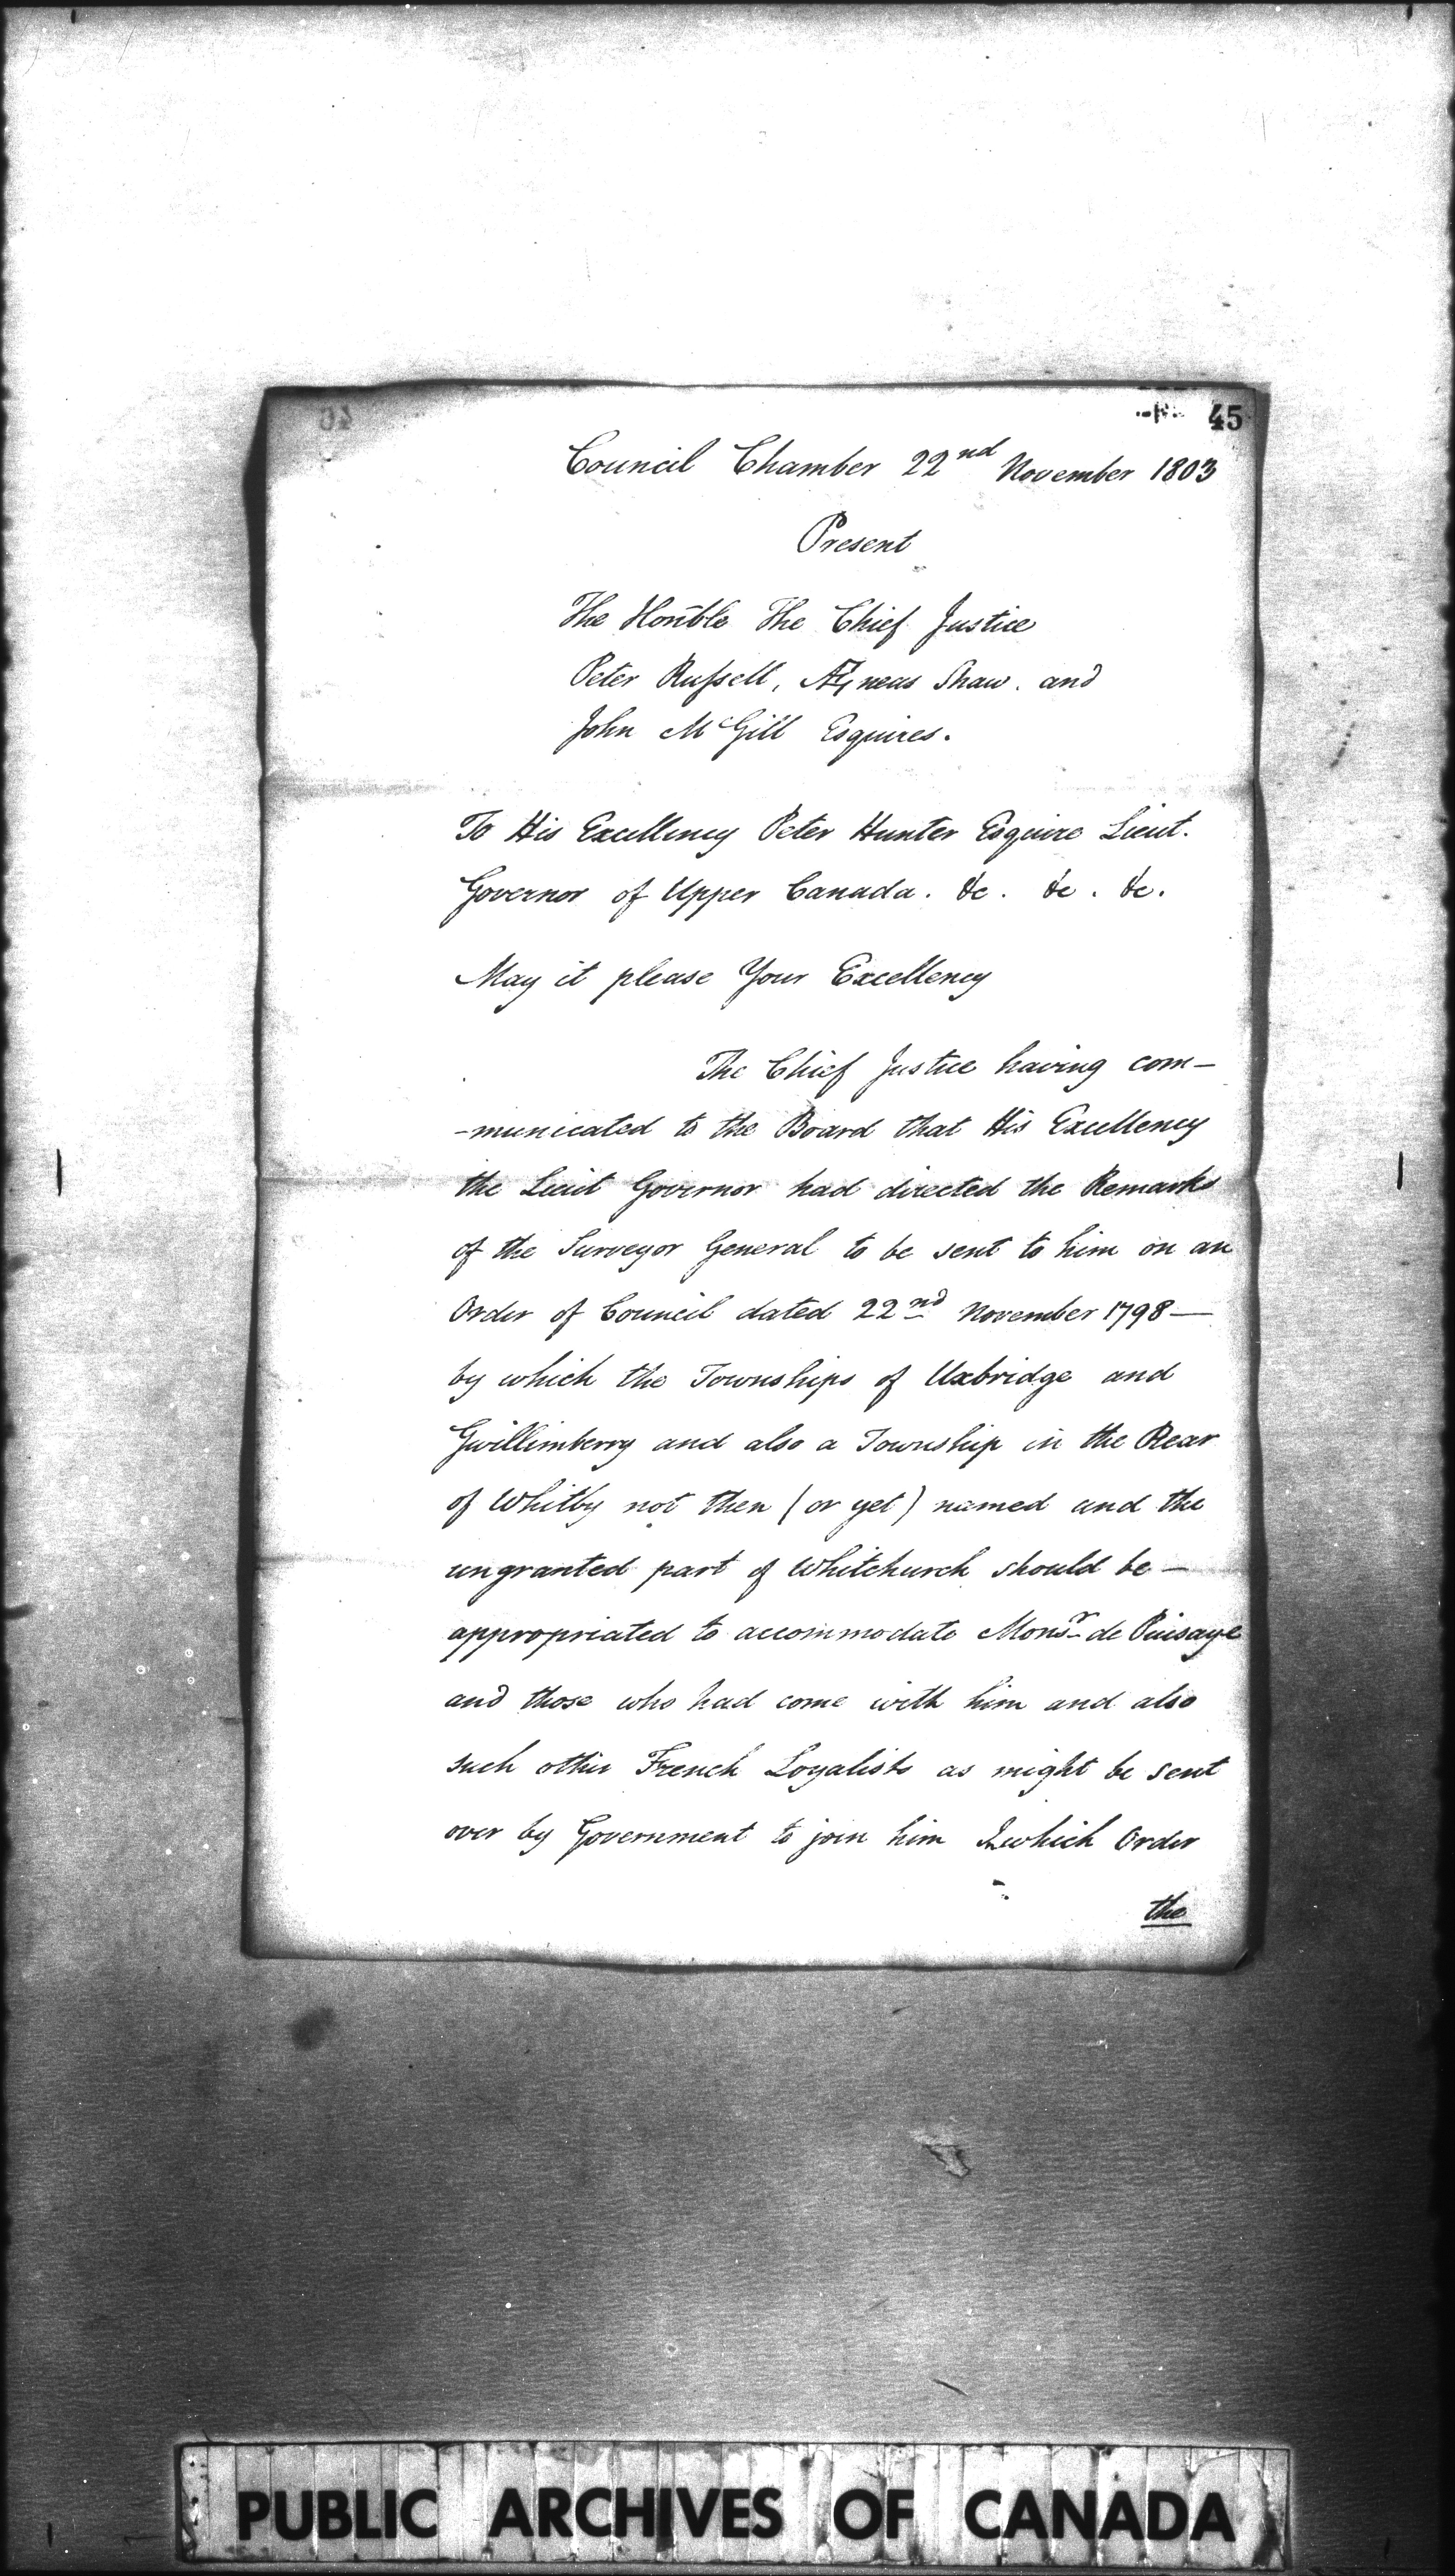 45
Council Chamber 22nd November 1803
Present
The Honble The Chief Justice
Peter Russell, Æneas Shaw. and
John McGill Esquires.
To His Excellency Peter Hunter Esquire Lieut.
Governor of Upper Canada. &c. &c. &c.
May it please Your Excellency
The Chief Justice having com-
-municated to the Board that His Excellency
the Lieut Governor had directed the Remarks
of the Surveyor General to be sent to him on an
Order of Council dated 22nd November 1798—
by which the Townships of Uxbridge and
Gwillimberry and also a Township in the Rear
of Whitby not then (or yet) named and the
ungranted part of Whitchurch should be—
appropriated to accommodate Monsr de Puisaye
and those who had come with him and also
such other French Loyalists as might be sent
over by Government to join him In which Order
the
PUBLIC ARCHIVES OF CANADA